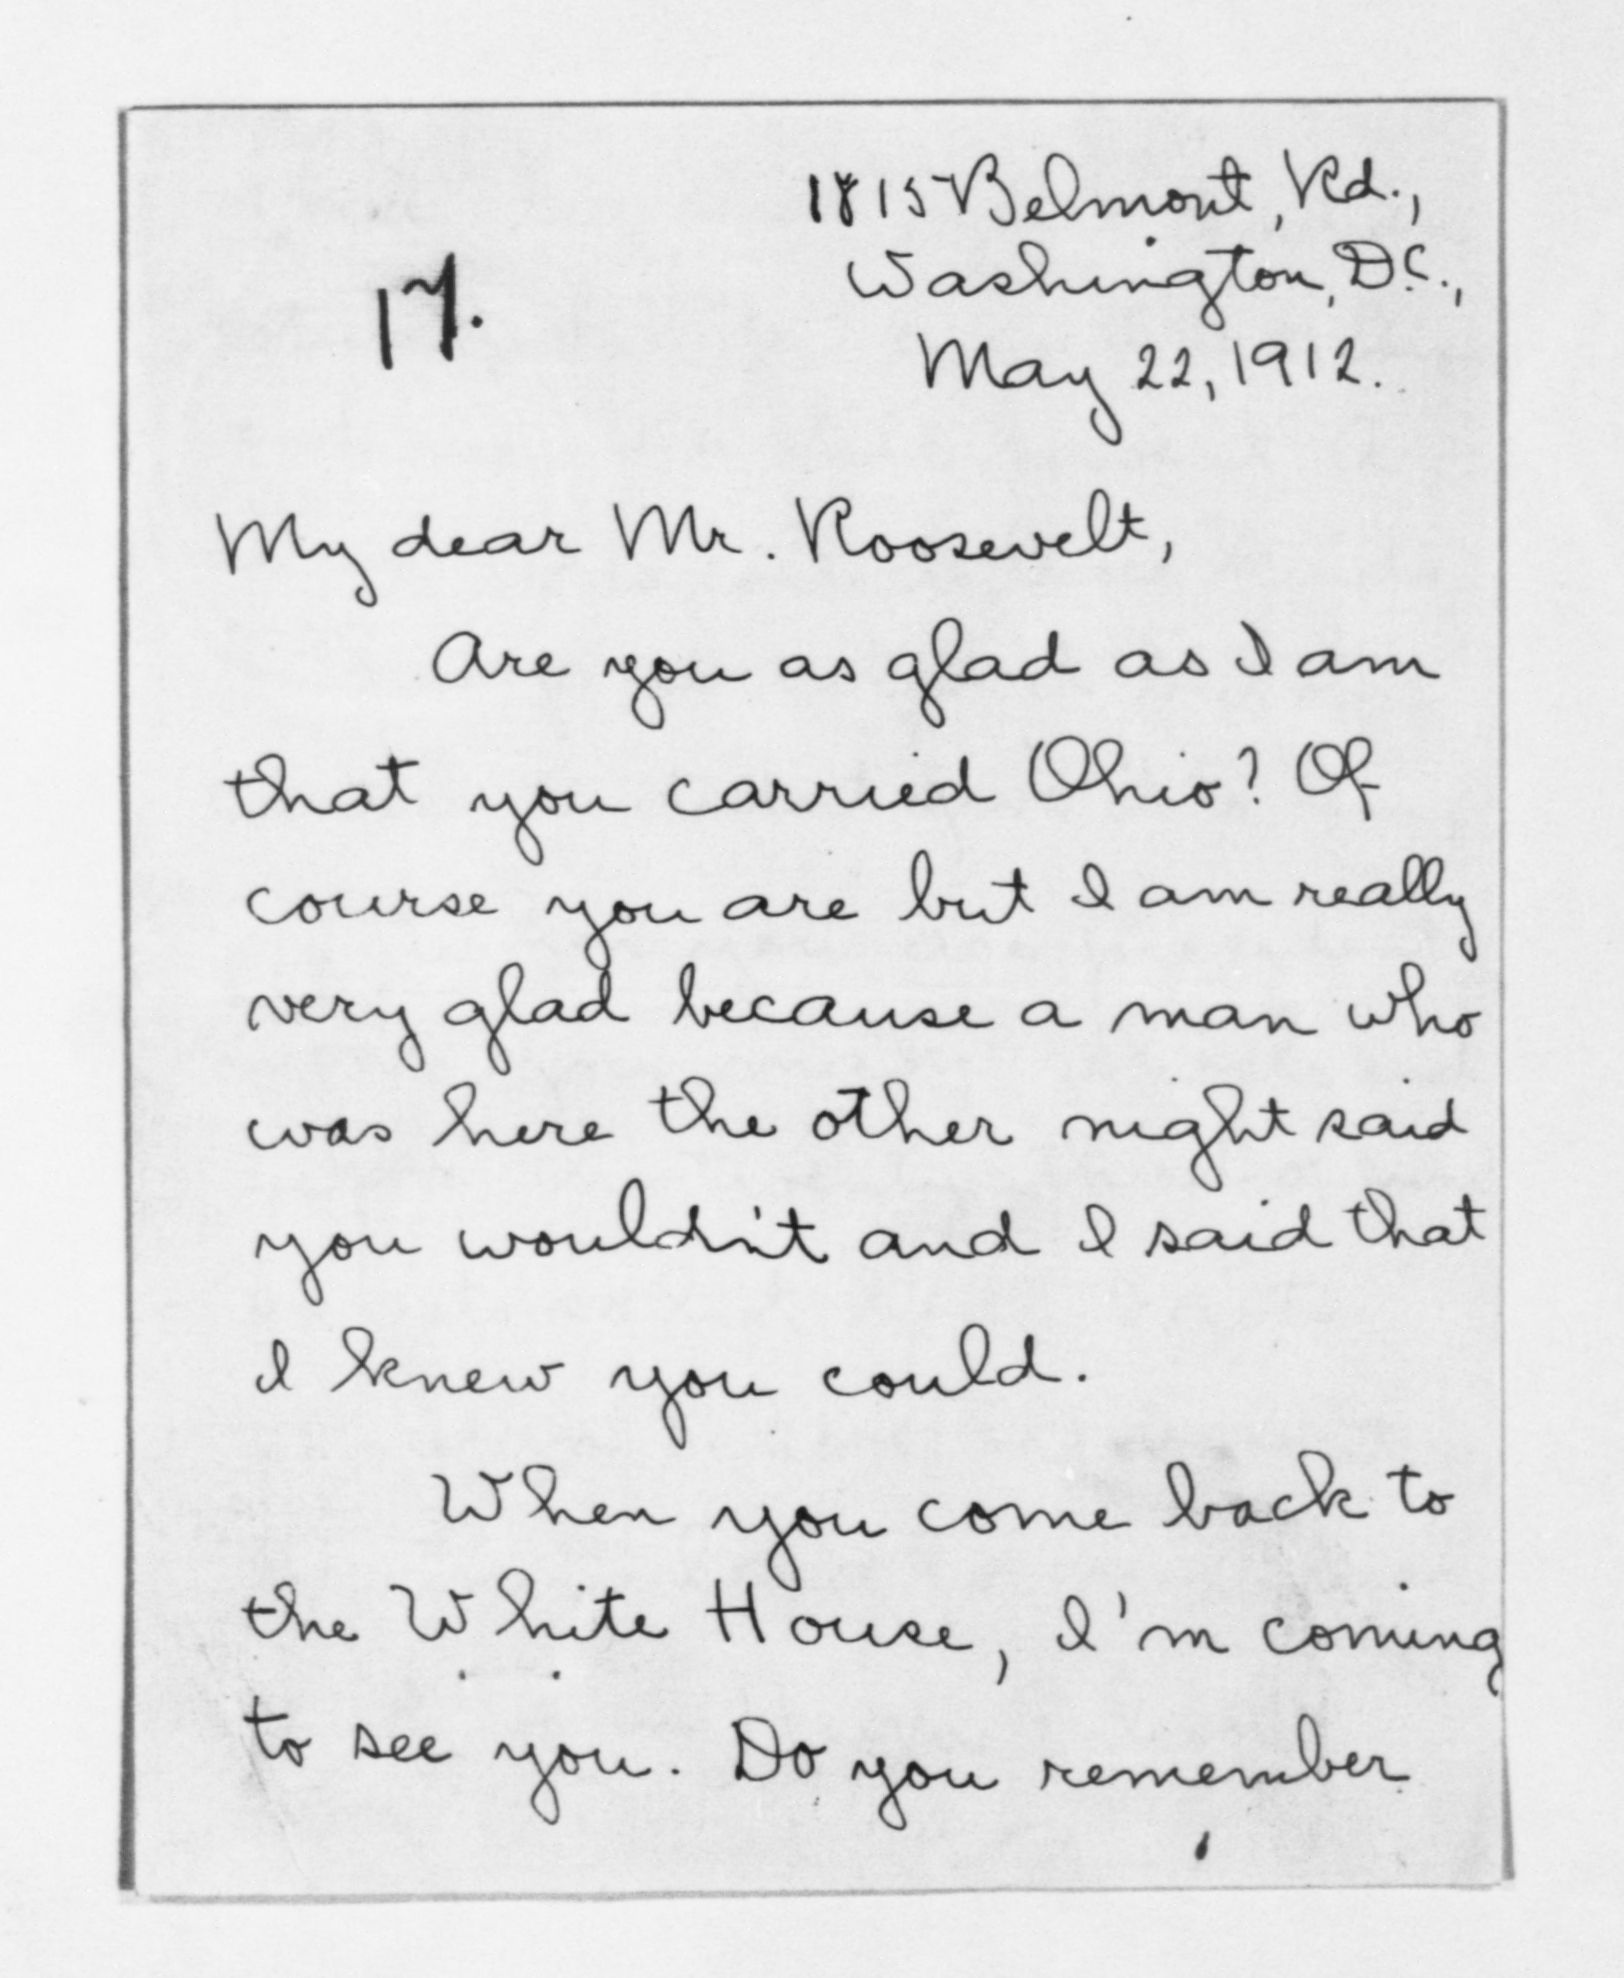 1815 Belmont, Rd.,
Washington, D.C.,
17.
May 22, 1912.
My dear Mr. Roosevelt,
Are you as glad as I am
that you carried Ohio? Of
course you are but I am really
very glad because a man who
was here the other night said
you wouldn't and I said that
I knew you could.
When you come back to
the White House, I'm coming
to see you. Do you remember